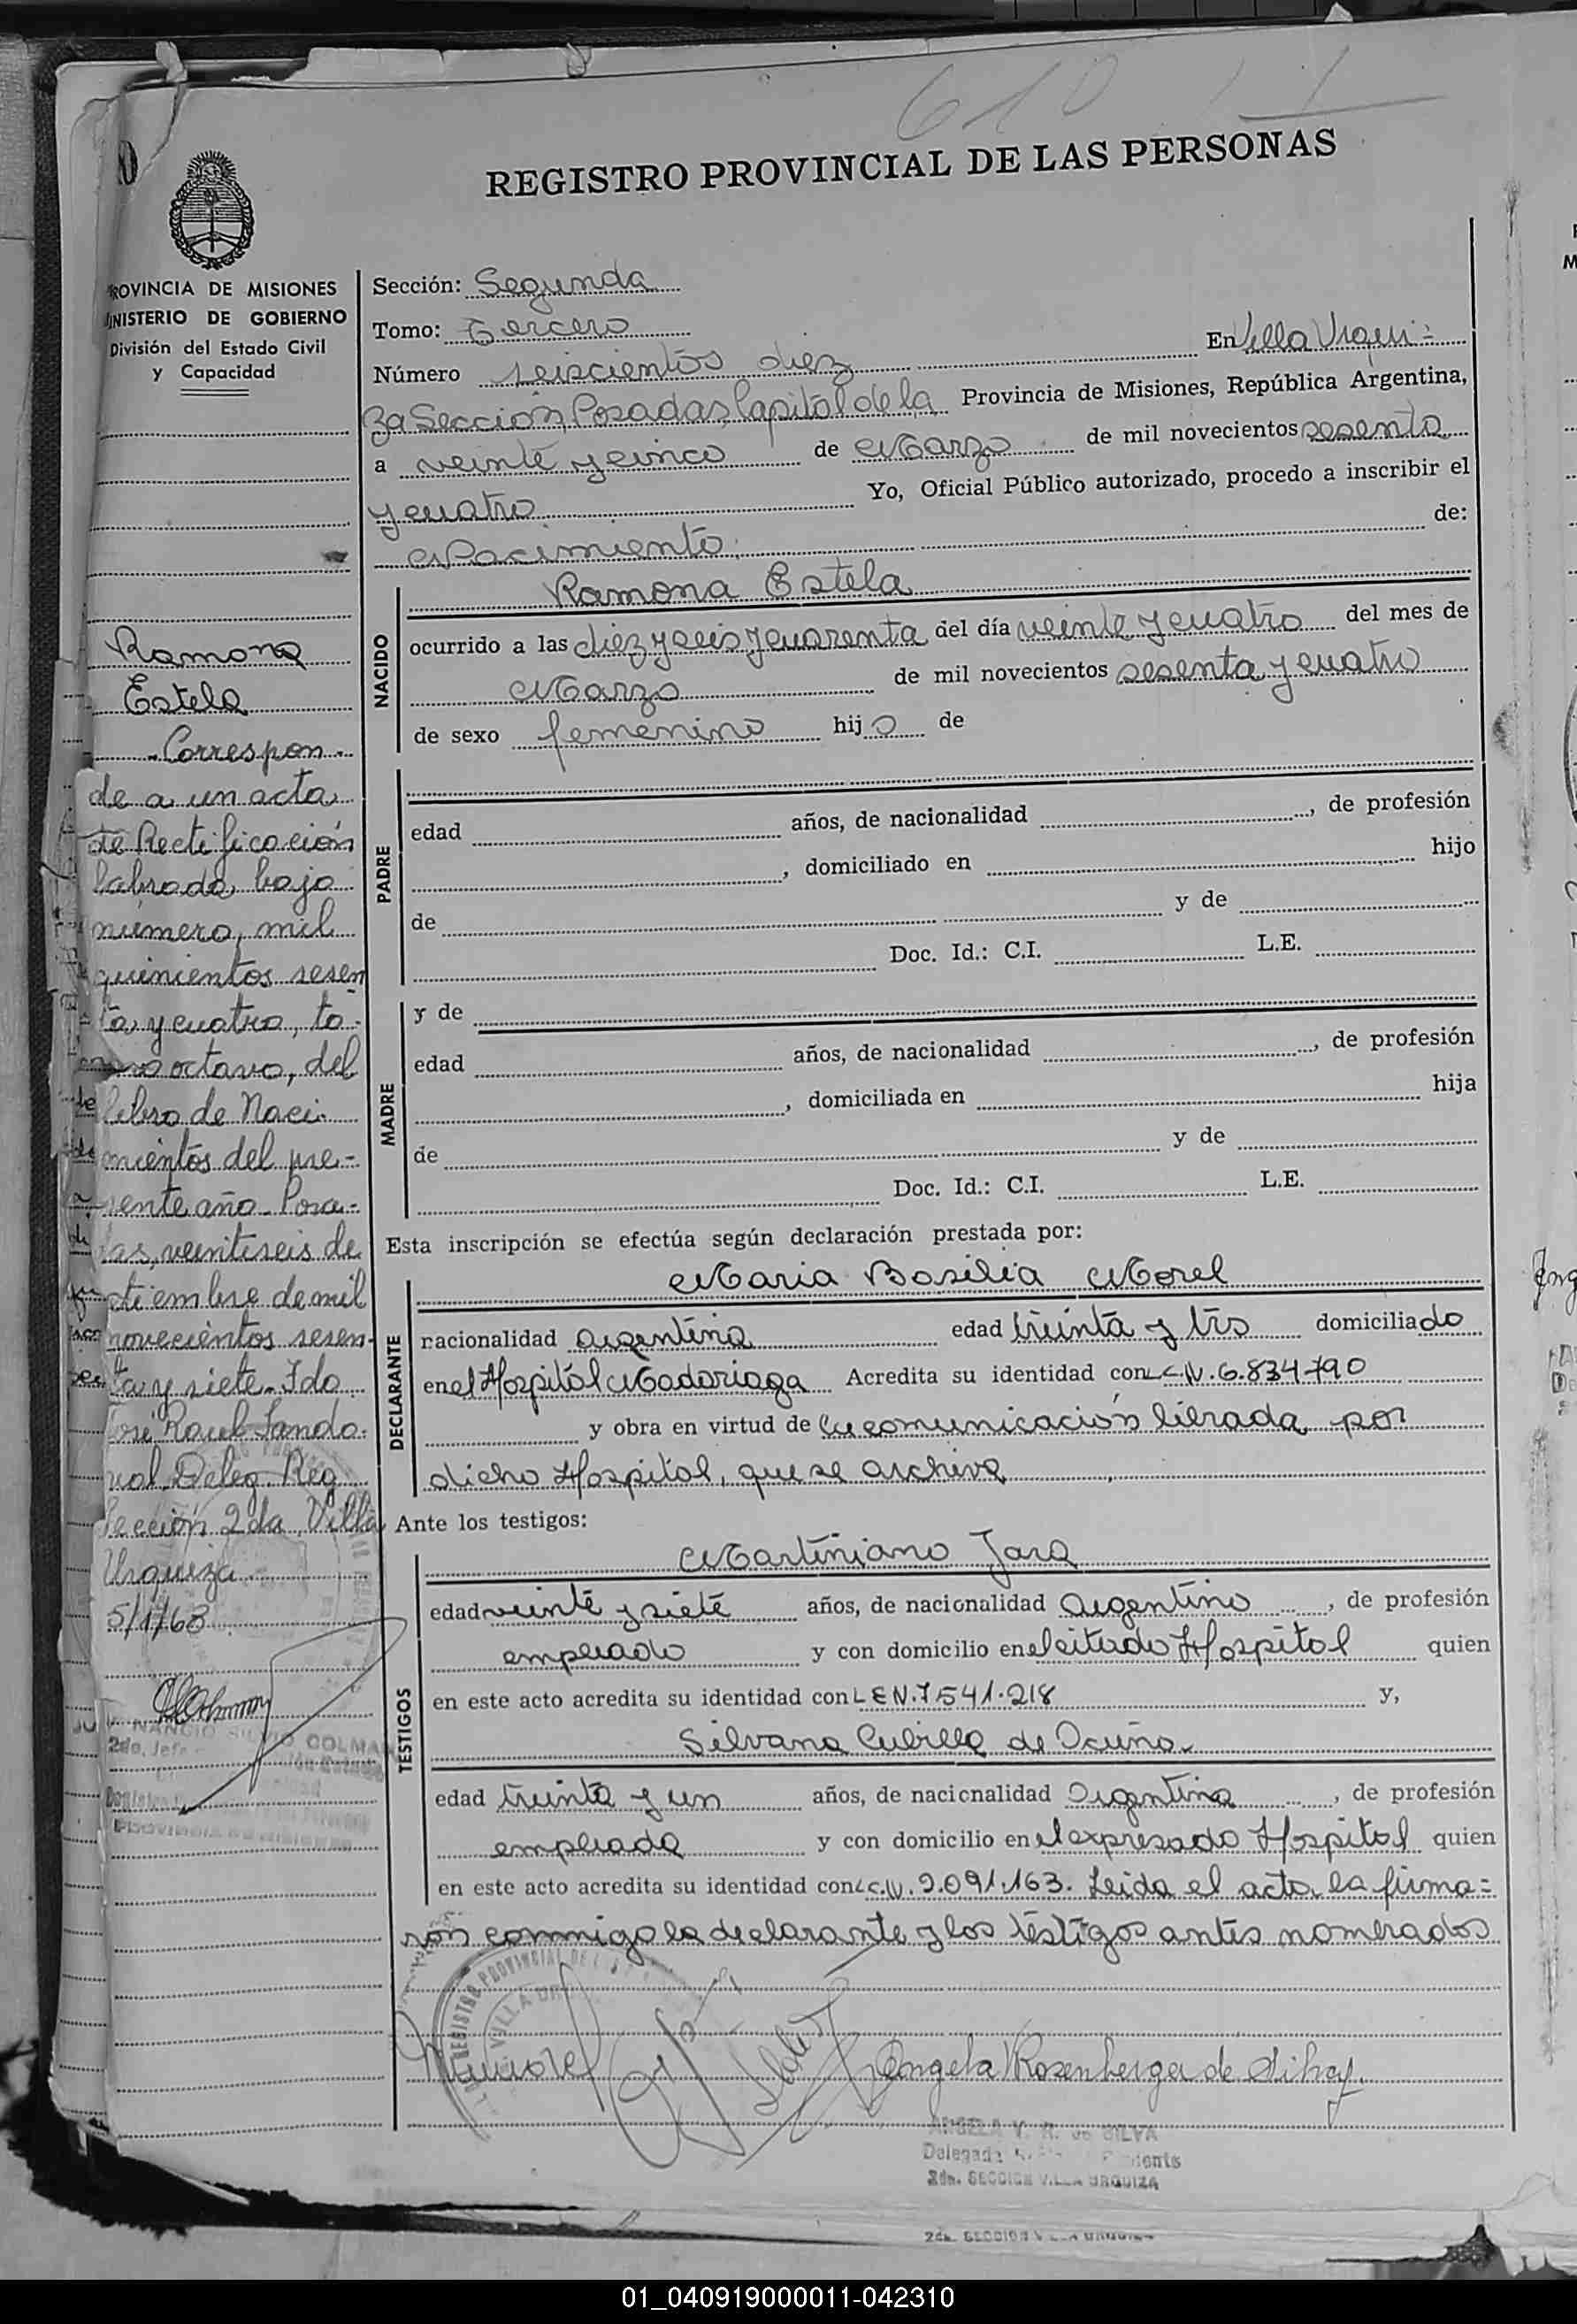 610
REGISTRO PROVINCIAL DE LAS PERSONAS
PROVINCIA DE MISIONES
MINISTERIO DE GOBIERNO
División del Estado Civil
y Capacidad
Ramona
Estela
Correspon-
de a un acta
de Rectificación
labrada, bajo
número, mil
quinientos sesen
ta y cuatro, to-
mo octavo, del
libro de Naci-
mientos del pre-
sente año. Posa-
das, veintiseis de
tiembre de mil
novecientos sesen-
ta y siete. Fdo
José Raul Sando-
val Deleg. Reg
Sección 2da Villa
Urquiza
5/1/68
SILVIO COLMAN
2do. Jefe
Sección: Segunda
Tomo: Tercero
Número seiscientos diez En Villa Urqui=
za Sección, Posadas, Capital de la Provincia de Misiones, República Argentina,
a veinte y cinco de Marzo de mil novecientos sesenta
y cuatro Yo, Oficial Público autorizado, procedo a inscribir el
Nacimiento de:
NACIDO
Ramona Estela
ocurrido a las diez y seis y cuarenta del día veinte y cuatro del mes de
Marzo de mil novecientos sesenta y cuatro
de sexo femenino hija de
PADRE
edad años, de nacionalidad , de profesión
, domiciliado en hijo
de y de
Doc. Id.: C.I. L.E.
MADRE
y de
edad años, de nacionalidad , de profesión
, domiciliada en hija
de y de
Doc. Id.: C.I. L.E.
Esta inscripción se efectúa según declaración prestada por:
DECLARANTE
Maria Basilia Morel
nacionalidad argentina edad treinta y tres domiciliado
en el Hospital Madariaga Acredita su identidad con L.C.N. 6.834.790
y obra en virtud de la comunicación librada por
dicho Hospital, que se archiva
Ante los testigos:
TESTIGOS
Martiniano Jara
edad veinte y siete años, de nacionalidad argentino , de profesión
empleado y con domicilio en el citado Hospital quien
en este acto acredita su identidad con L E N. 7.541.218 y,
Silvana Cubilla de Ocuño.
edad treinta y un años, de nacionalidad Argentina , de profesión
empleada y con domicilio en el expresado Hospital quien
en este acto acredita su identidad con L.C.N. 2.091.163. Leida el acta la firma=
ron conmigo la declarante y los testigos antes nombrados
REGISTRO PROVINCIAL DE
VILLA UR
Angela V Rosenberger de Silva
ANGELA V. R. de SILVA
Delegada
2da. SECCION VILLA URQUIZA
2da. SECCION VILLA URQUIZA
01_040919000011-042310